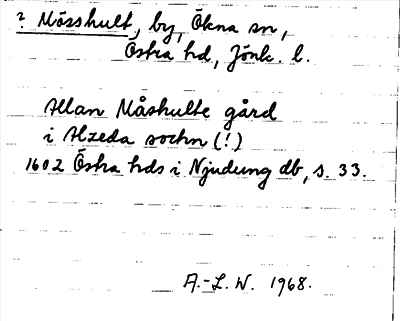 ? Mösshult, by, Ökna sn,
Östra hd, Jönk. l.
Allan Måshulte gård
i Alzeda sochn (!)
1602 Östra hds i Njudung db, s. 33.
A.-L. W. 1968.